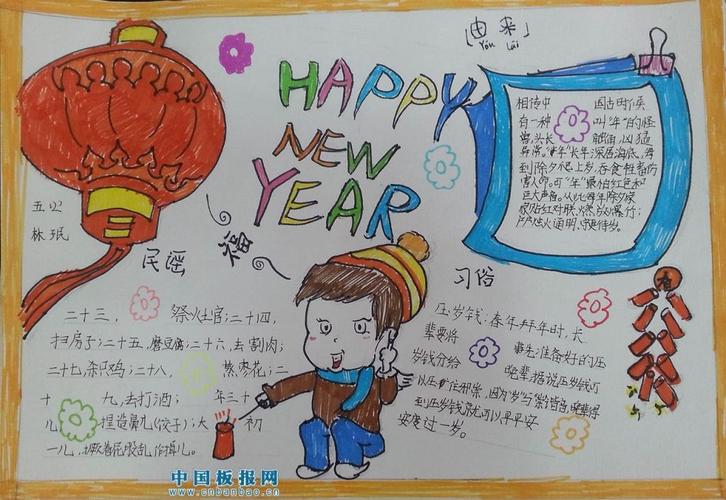 [由来]
Yóu Lái
HAPPY
NEW
YEAR
相传中国古时候
有一种叫"年"的怪
兽,头长触角,凶猛
异常。"年"长年深居海底,每
到除夕爬上岸,吞食牲畜伤
害人命。可"年"最怕红色和
巨大声音。从此每年除夕家
家贴红对联、燃放爆竹;
户户烛火通明,守更待岁。
林珉
福
春
民谣
二十三,祭灶官;二十四,
扫房子;二十五,磨豆腐;二十六,去割肉;
二十七,杀只鸡;二十八,蒸枣花;二
十九,去打酒;年三十
儿,捏造鼻儿(饺子);大初
一儿,撅着屁股乱作揖儿。
习俗
压岁钱:春年拜年时,长
辈要将事先准备好的压
岁钱分给晚辈,据说压岁钱可
以压住邪祟,因为岁与祟谐音,晚辈得
到压岁钱就可以平平安
安度过一岁。
中国板报网
www.cnbanbao.cn